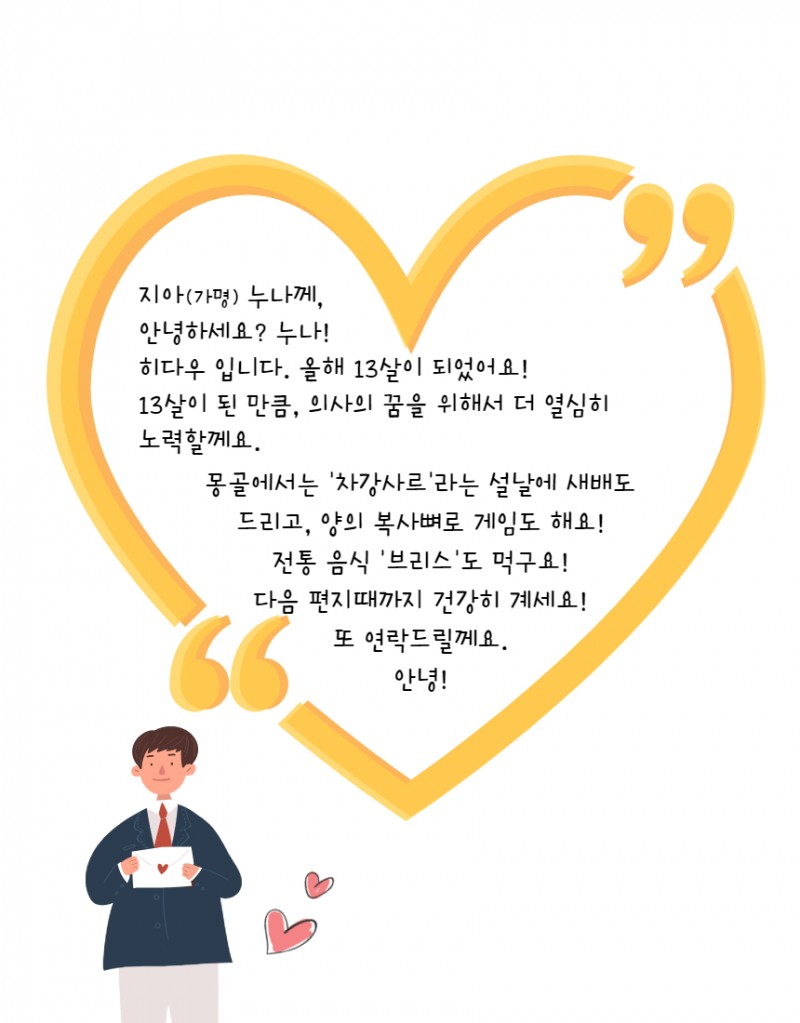 지아(가명) 누나께,
안녕하세요? 누나!
히다우 입니다. 올해 13살이 되었어요!
13살이 된 만큼, 의사의 꿈을 위해서 더 열심히
노력할께요.
몽골에서는 '차강사르'라는 설날에 새배도
드리고, 양의 복사뼈로 게임도 해요!
전통 음식 '브리스'도 먹구요!
다음 편지때까지 건강히 계세요!
또 연락드릴께요.
안녕!